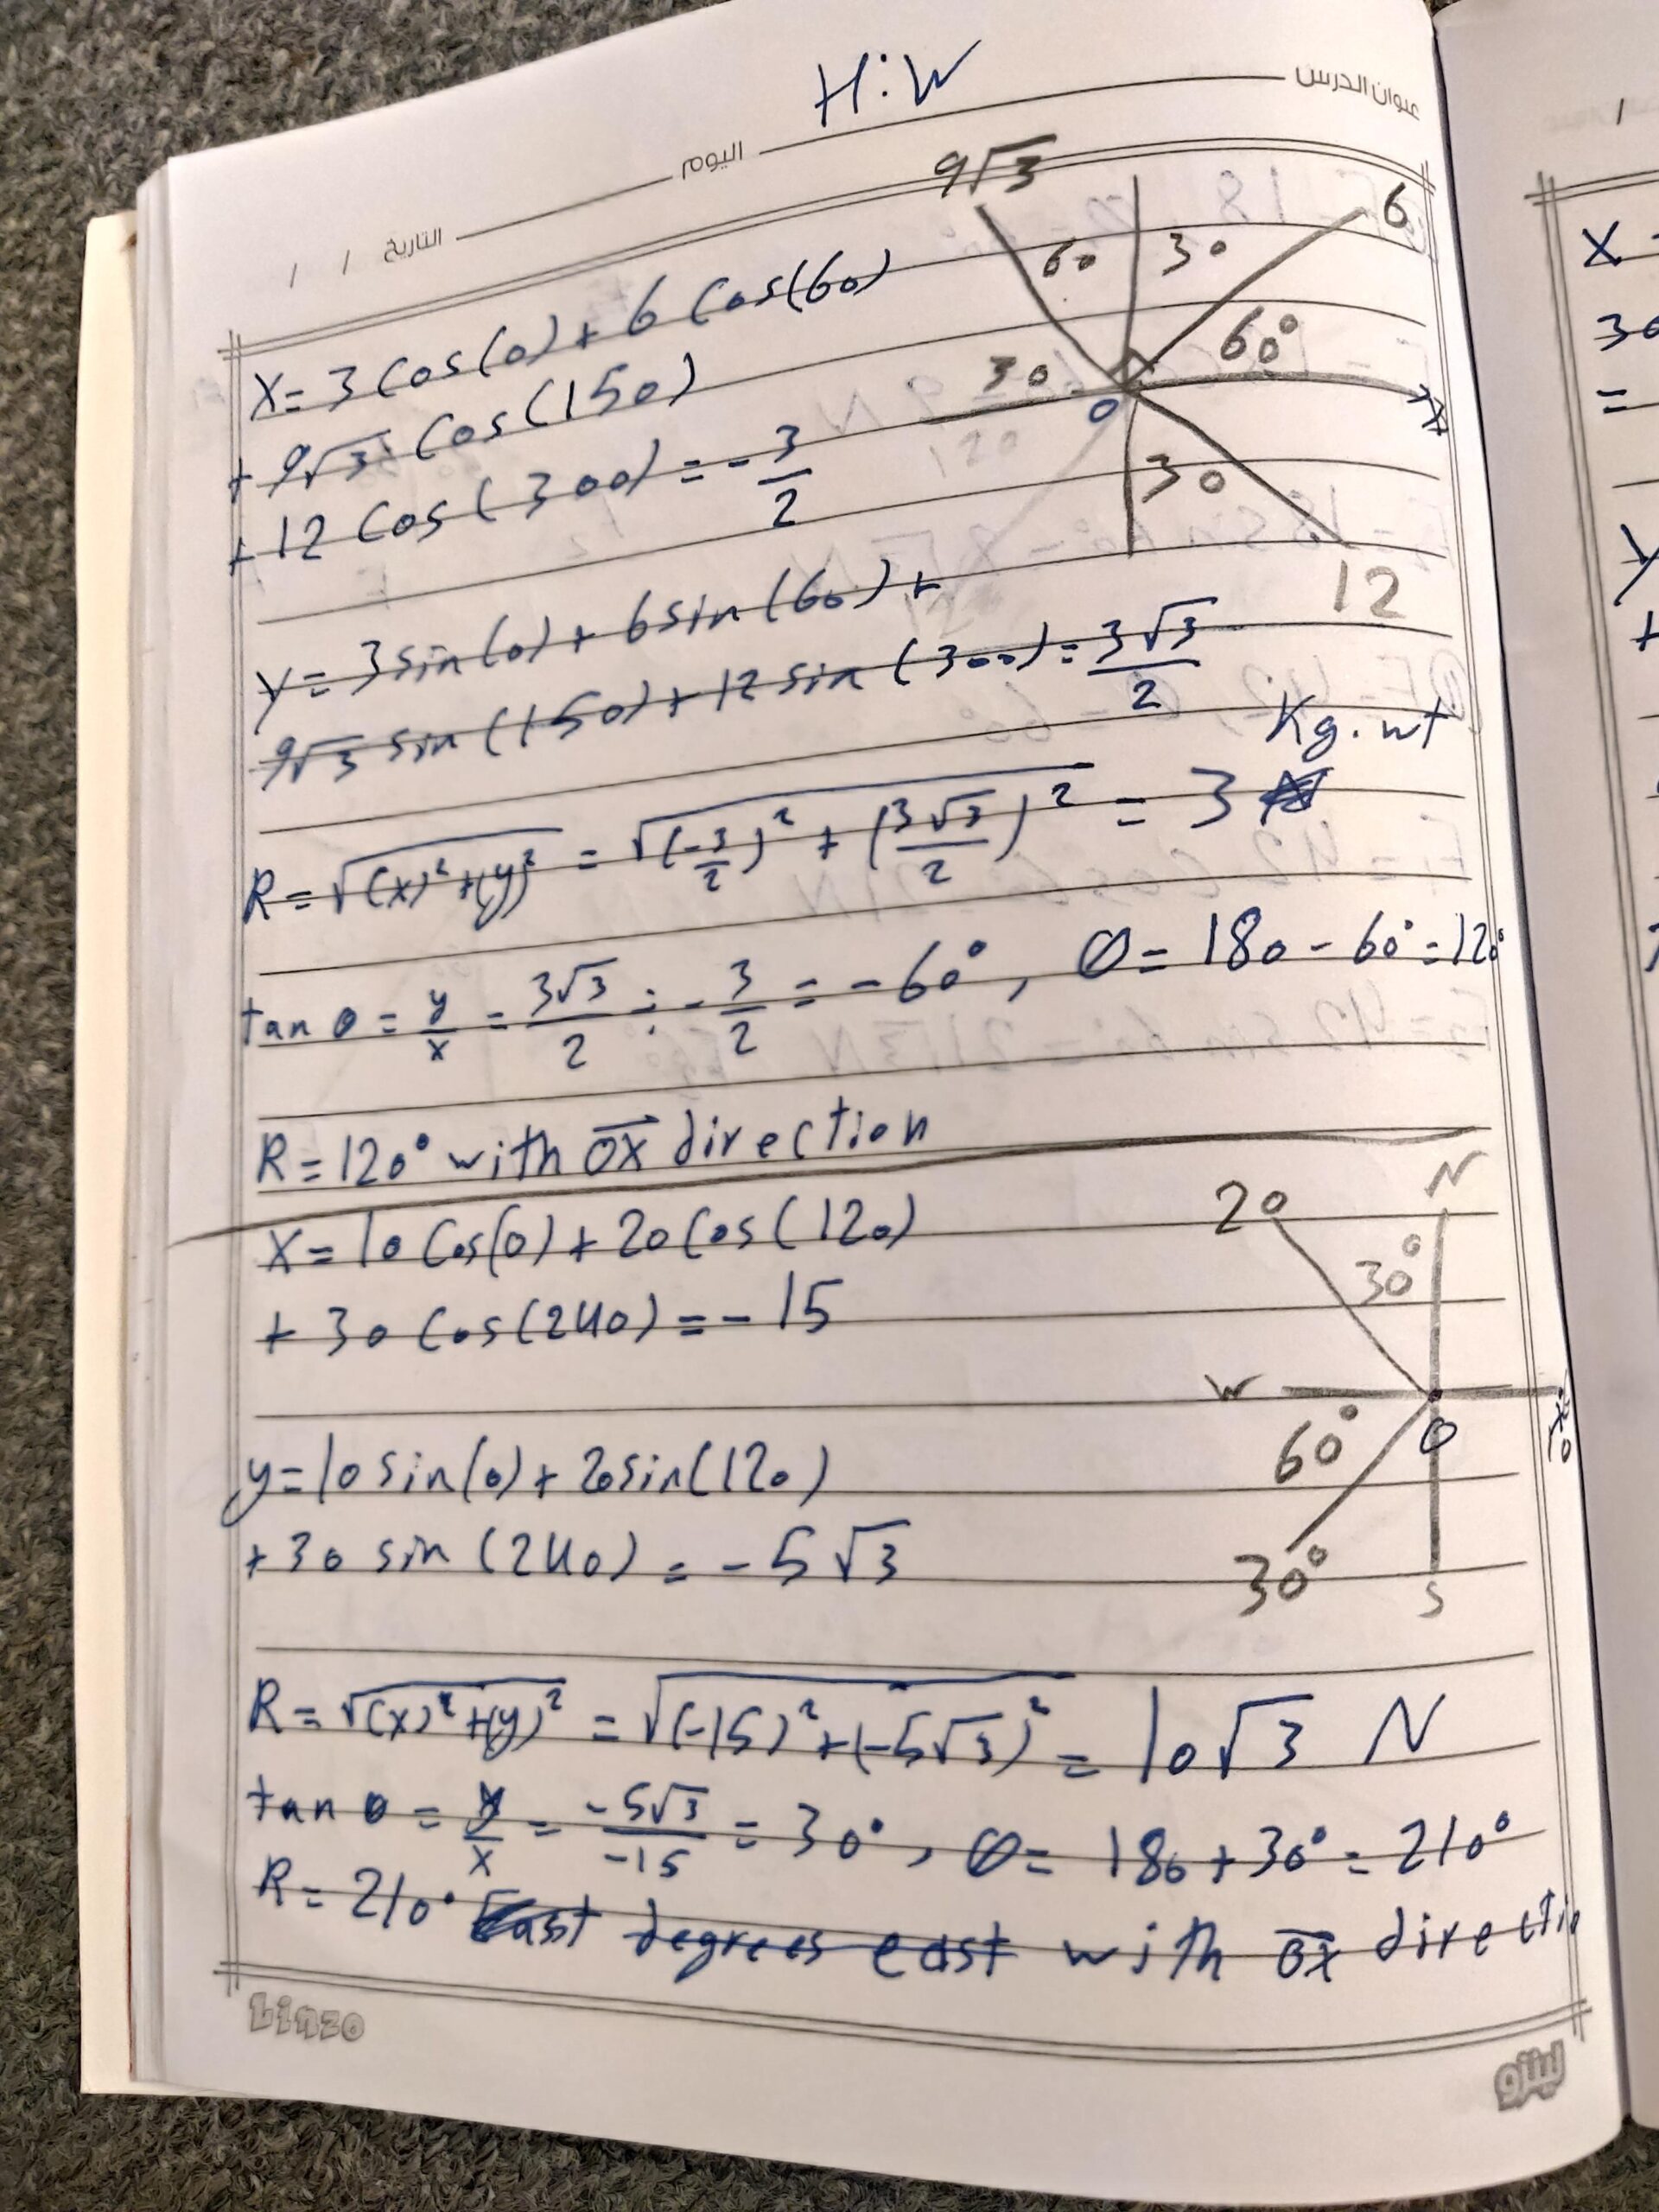 H.W
عنوان الدرس
اليوم
التاريخ / /
9√3
6
60
30
60°
30
O
x
30
12
X = 3 Cos(0) + 6 Cos(60)
+ 9√3 Cos(150)
+ 12 Cos(300) = -3/2
y = 3 sin(0) + 6 sin(60) +
9√3 sin(150) + 12 sin(300) = 3√3/2
Kg.wt
R = √(x)²+(y)² = √(-3/2)² + (3√3/2)² = 3
tan θ = y/x = 3√3/2 ÷ -3/2 = -60°, θ = 180 - 60° = 120°
R = 120° with OX direction
X = 10 Cos(0) + 20 Cos(120)
+ 30 Cos(240) = -15
y = 10 sin(0) + 20 sin(120)
+ 30 sin(240) = -5√3
N
20
30°
W
O
60°
30°
S
R = √(x)²+(y)² = √(-15)²+(-5√3)² = 10√3 N
tan θ = y/x = -5√3/-15 = 30°, θ = 180 + 30° = 210°
R = 210° East degrees east with OX directi
Linzo
لينزو
X
30
=
y
+